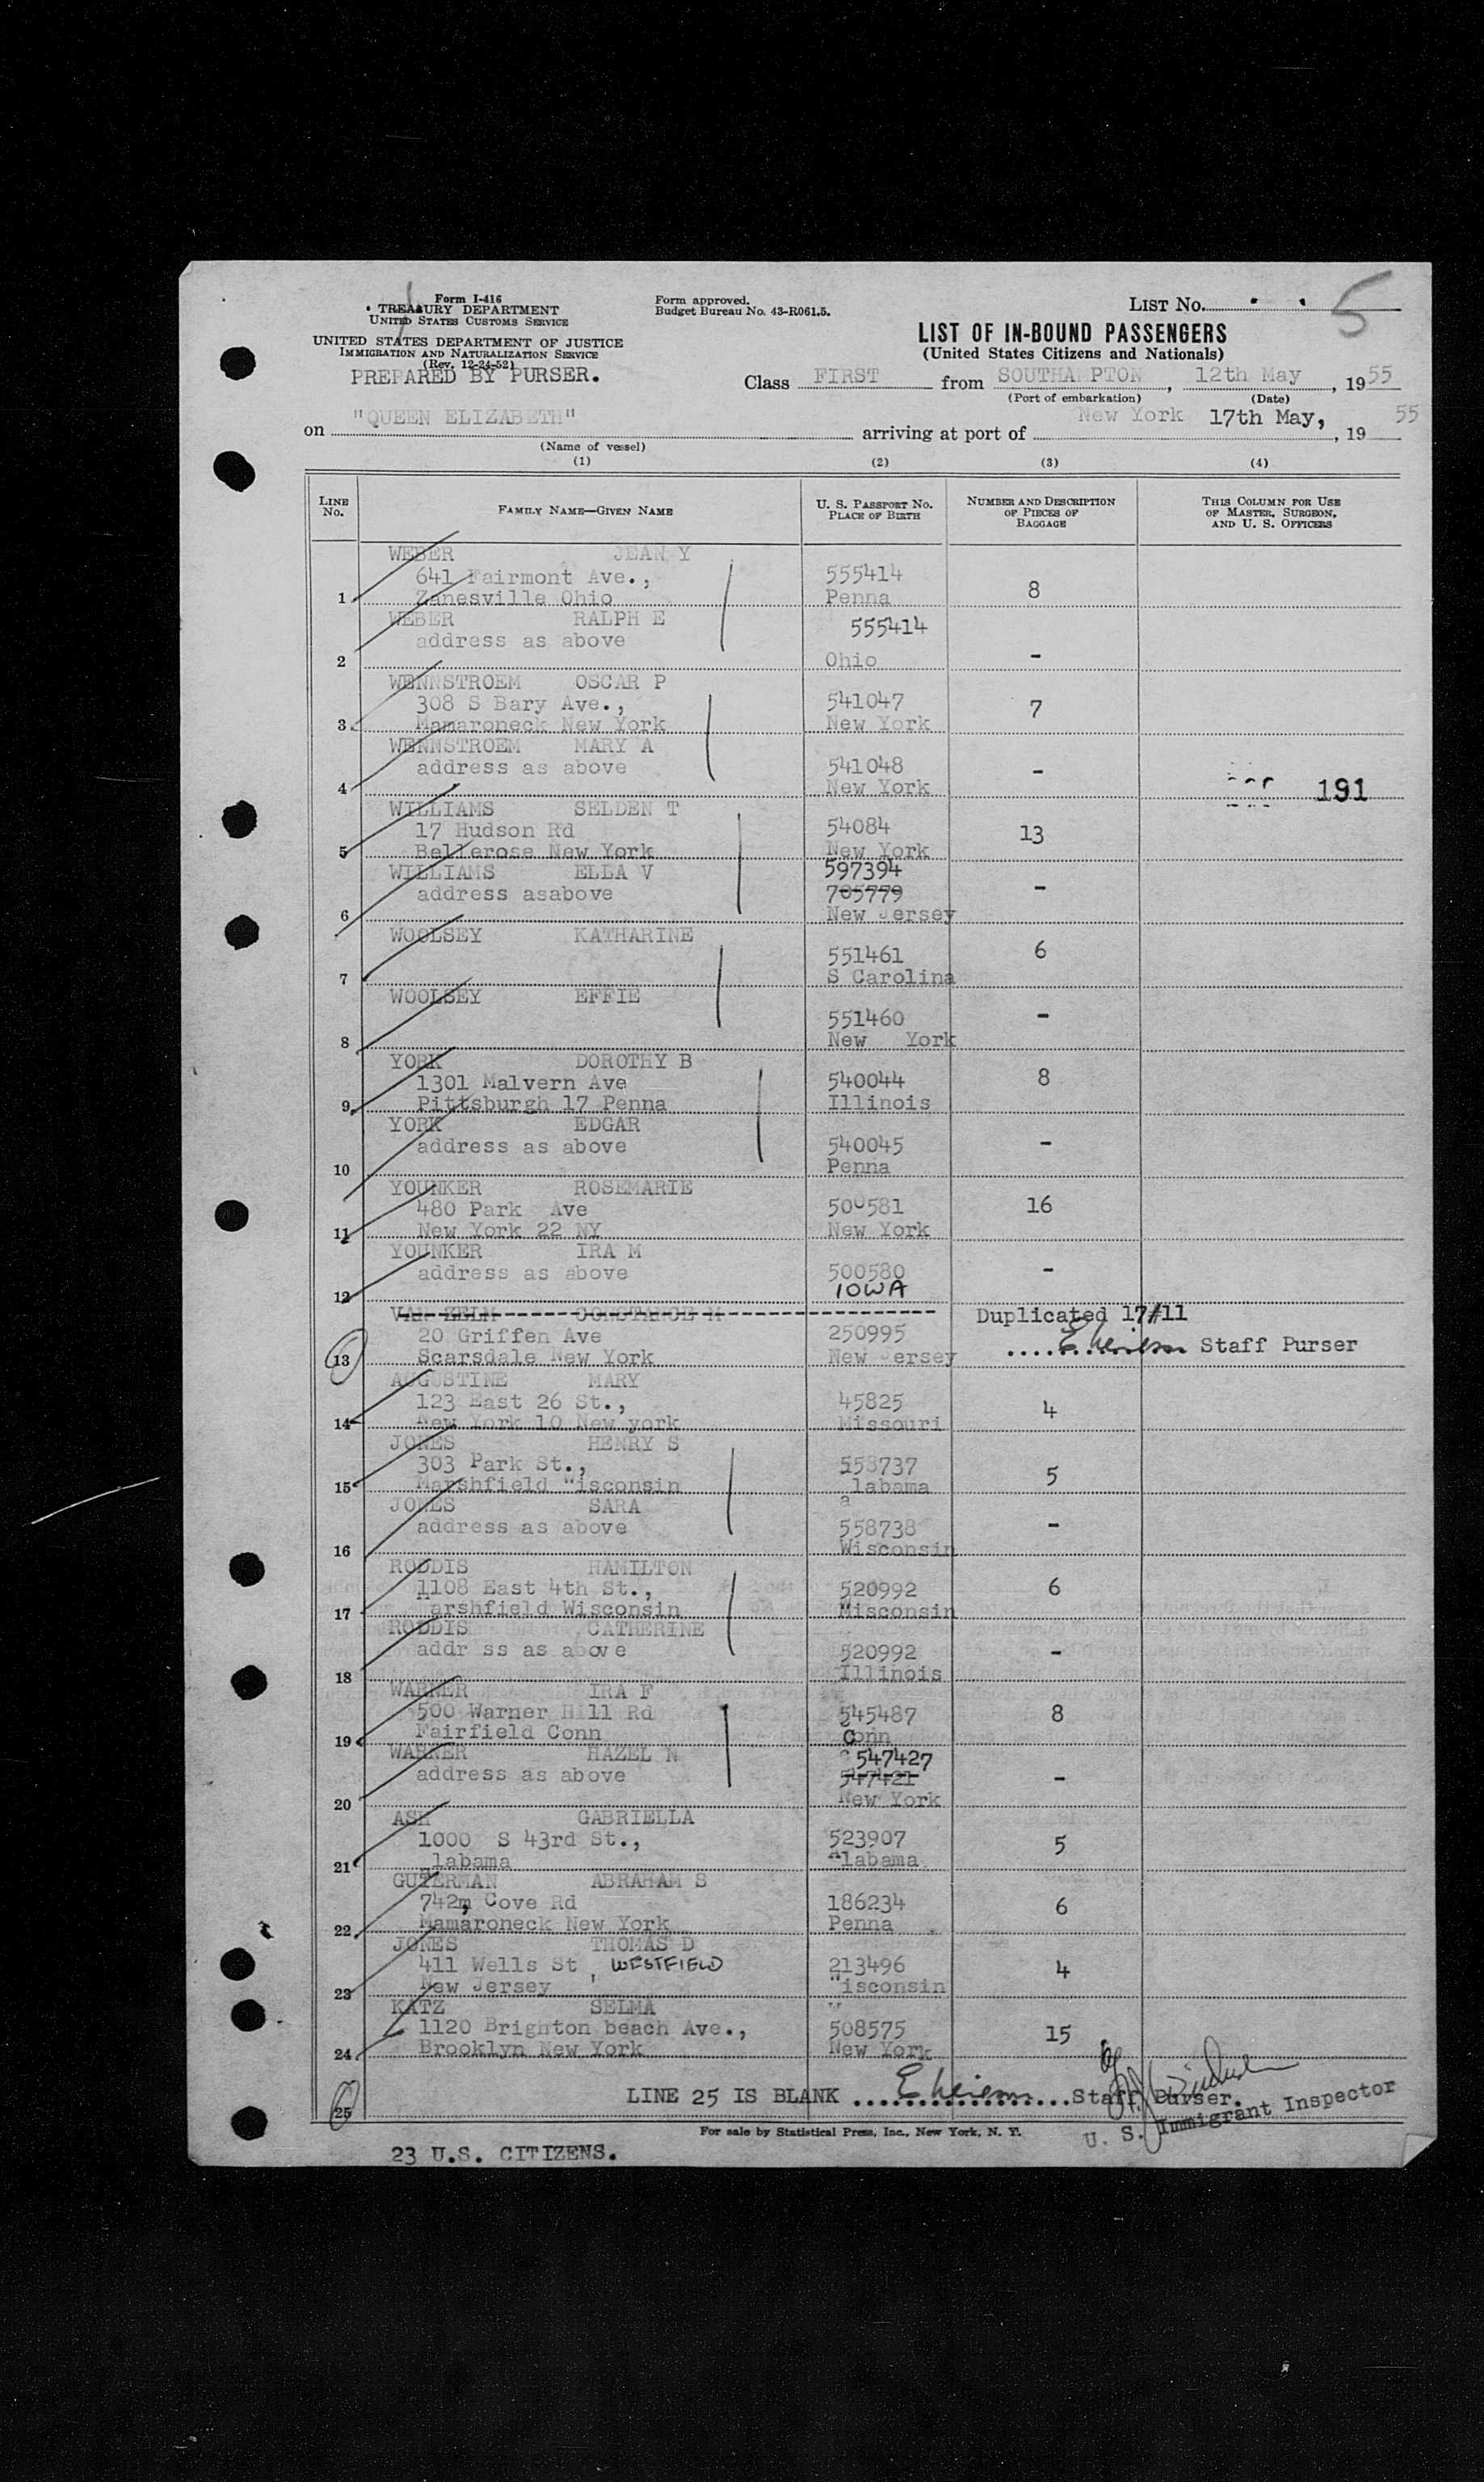 Form I-416
TREASURY DEPARTMENT
UNITED STATES CUSTOMS SERVICE
UNITED STATES DEPARTMENT OF JUSTICE
IMMIGRATION AND NATURALIZATION SERVICE
(Rev. 12-24-52)
PREPARED BY PURSER.
Form approved.
Budget Bureau No. 43-R061.5.
LIST NO. 5
LIST OF IN-BOUND PASSENGERS
(United States Citizens and Nationals)
Class FIRST from SOUTHAMPTON, 12th May, 1955
(Port of embarkation) (Date)
on "QUEEN ELIZABETH" arriving at port of New York 17th May, 1955
(Name of vessel)
(1) (2) (3) (4)
LINE NO. FAMILY NAME—GIVEN NAME U. S. PASSPORT NO. PLACE OF BIRTH NUMBER AND DESCRIPTION OF PIECES OF BAGGAGE THIS COLUMN FOR USE OF MASTER, SURGEON, AND U. S. OFFICERS
WEBER JEAN Y
641 Fairmont Ave., 555414
1 Zanesville Ohio Penna 8
WEBER RALPH E 555414
address as above
2 Ohio -
WENNSTROEM OSCAR P
308 S Bary Ave., 541047 7
3 Mamaroneck New York New York
WENNSTROEM MARY A
address as above 541048 -
4 New York 191
WILLIAMS SELDEN T
17 Hudson Rd 54084 13
5 Bellerose New York New York
WILLIAMS ELLA V 597394
address asabove 705779 -
6 New Jersey
WOOLSEY KATHARINE
551461 6
7 S Carolina
WOOLSEY EFFIE
551460 -
8 New York
YORK DOROTHY B
1301 Malvern Ave 540044 8
9 Pittsburgh 17 Penna Illinois
YORK EDGAR
address as above 540045 -
10 Penna
YOUNKER ROSEMARIE
480 Park Ave 500581 16
11 New York 22 NY New York
YOUNKER IRA M
address as above 500580 -
12 IOWA
VAN ZELM CONSTANCE M Duplicated 17/11
20 Griffen Ave 250995
13 Scarsdale New York New Jersey Staff Purser
AUGUSTINE MARY
123 East 26 St., 45825 4
14 New York 10 New york Missouri
JONES HENRY S
303 Park St., 558737 5
15 Marshfield Wisconsin alabama
JONES SARA
address as above 558738 -
16 Wisconsin
RODDIS HAMILTON
1108 East 4th St., 520992 6
17 Marshfield Wisconsin Wisconsin
RODDIS CATHERINE
addr ss as above 520992 -
18 Illinois
WARNER IRA F
500 Warner Hill Rd 545487 8
19 Fairfield Conn Conn
WARNER HAZEL N 547427
address as above 547421 -
20 New York
ASH GABRIELLA
1000 S 43rd St., 523907 5
21 labama Alabama
GUTERMAN ABRAHAM S
742m Cove Rd 186234 6
22 Mamaroneck New York Penna
JONES THOMAS D
411 Wells St, WESTFIELD 213496 4
23 New Jersey Wisconsin
KATZ SELMA
1120 Brighton beach Ave., 508575 15
24 Brooklyn New York New York
25 LINE 25 IS BLANK Staff Purser.
U. S. Immigrant Inspector
For sale by Statistical Press, Inc., New York, N. Y.
23 U.S. CITIZENS.